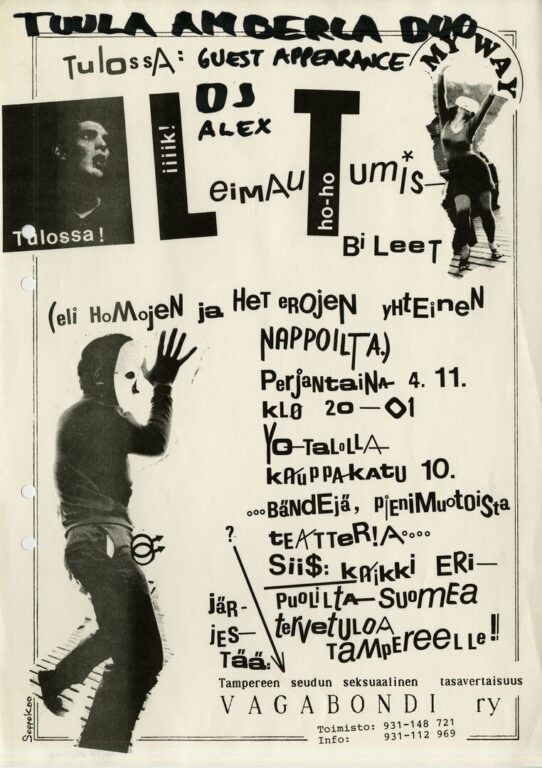 TUULA AMBERLA DUO
TulossA: GUEST APPEARANCE
MY WAY
DJ
ALEX
iiiik!
LeimAuTumis—
ho-ho
Tulossa!
BiLeeT
(eli HoMojeN ja HeTerojeN yhTEiNeN
NAPPOILTA.)
PerjantaiNA 4. 11.
kLo 20—01
YO-TaLoLLA
kAuppAkATU 10.
...BäNdEjä, pieNiMuoToista
teATTeR!A....
?
Sii$: kAikki ERi—
jär- PuoLiLTA—SuoMEa
jes— terveTuLOA
Tää: TaMpEReELLe!!
Tampereen seudun seksuaalinen tasavertaisuus
VAGABONDI ry
Toimisto: 931-148 721
Info: 931-112 969
SeppoKoo